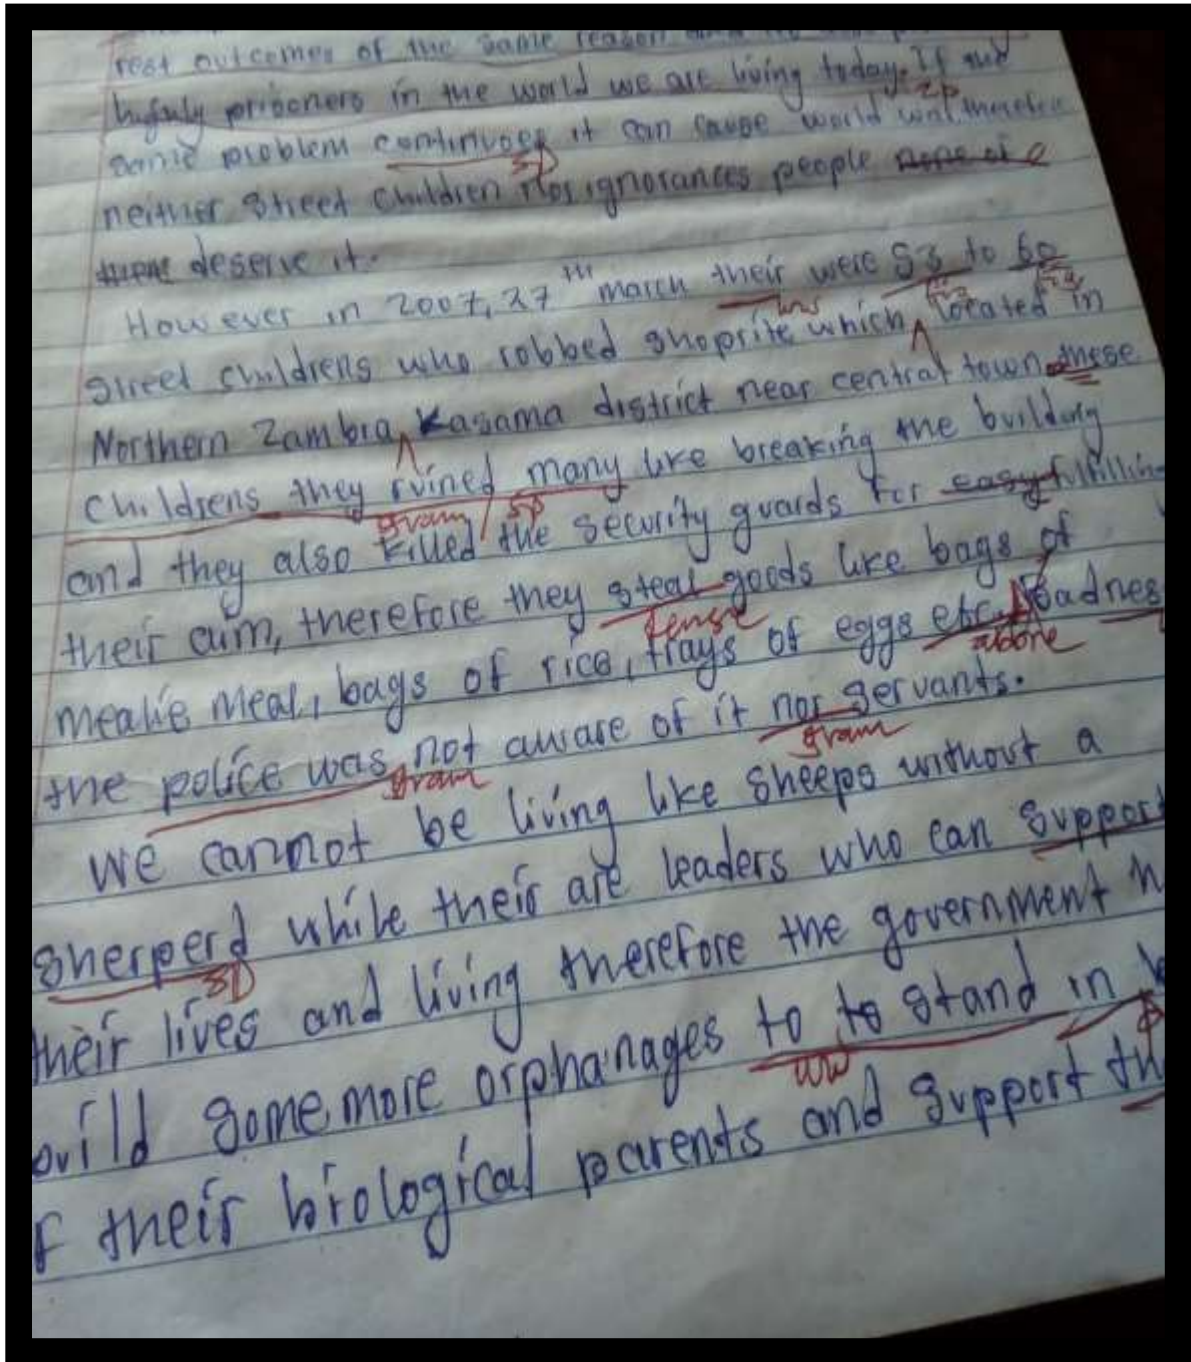 rest outcomes of the same reason
highly prisoners in the world we are living today. If the
same problem continues it can cause world war therefore
sp
sp
neither street children nor ignorances people none of
them deserve it.
However in 2007, 27th march their were 53 to 60
ww
street childrens who robbed shoprite which located in
Northern Zambia, Kasama district near central town these
childrens they ruined many like breaking the building
gram sp
and they also killed the security guards for easy fulfilling
their aim, therefore they steal goods like bags of
tense
mealie meal, bags of rice, trays of eggs etc. Sadness
the police was not aware of it nor servants.
gram gram
We cannot be living like sheeps without a
sherperd while their are leaders who can support
sp
their lives and living therefore the government
build some more orphanages to to stand in
ww
their biological parents and support